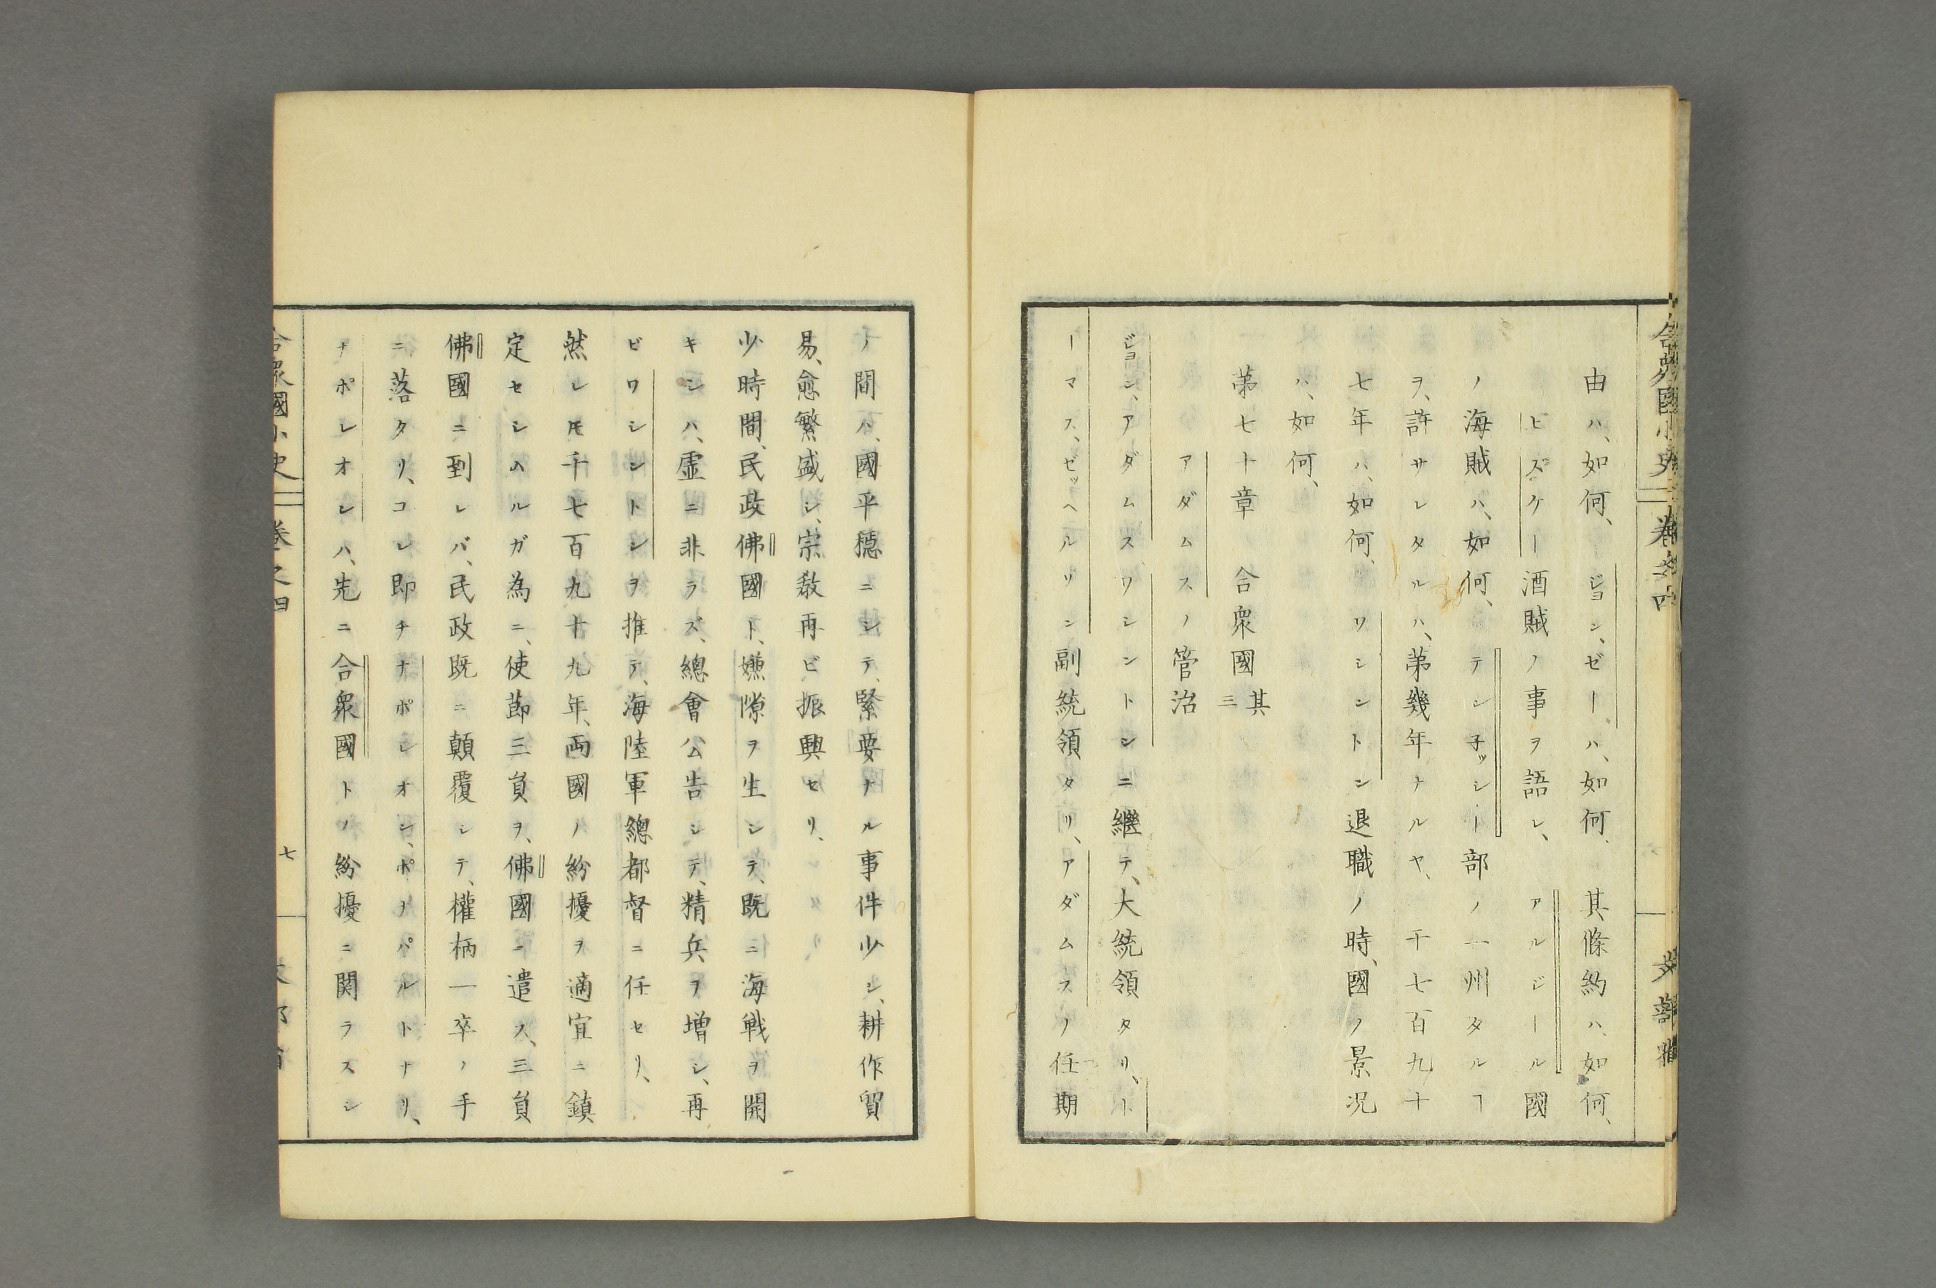 由ハ、如何、ージョン、ゼー、ハ、如何、其條約ハ、如何、
ヒズケー酒賊ノ事ヲ語レ、アルジール國
ノ海賊ハ、如何、テン子ッシー部ノ一州タルヿ
ヲ、許サレタルハ、第幾年ナルヤ、千七百九十
七年ハ、如何、ワシントン退職ノ時、國ノ景況
ハ、如何、
第七十章 合衆國其三
アダムスノ管治
ジョン、アダムス、ワシントンニ繼テ、大統領タリ、ト
ーマス、ゼッヘルソン副統領タリ、アダムスノ任期
ノ間ハ、國平穏ニシテ、緊要ナル事件少シ、耕作貿
易、愈繁盛シ、宗教再ビ振興セリ、
少時間、民政佛國ト、嫌隙ヲ生シテ、既ニ海戦ヲ開
キシハ、虚ニ非ラズ、總會公告シテ、精兵ヲ増シ、再
ビワシントンヲ推テ、海陸軍總都督ニ任セリ、
然レ𪜈千七百九十九年、両國ノ紛擾ヲ適宜ニ鎮
定セシムルガ為ニ、使節三負ヲ、佛國ニ遣ス、三負
佛國ニ到レバ、民政既ニ顛覆シテ、權柄一卒ノ手
ニ落タリ、コレ即チナポレオン、ボナパルトナリ、
ナポレオンハ、先ニ合衆國トノ紛擾ニ関ラスシ
合衆國小史 巻之四
七
文部省